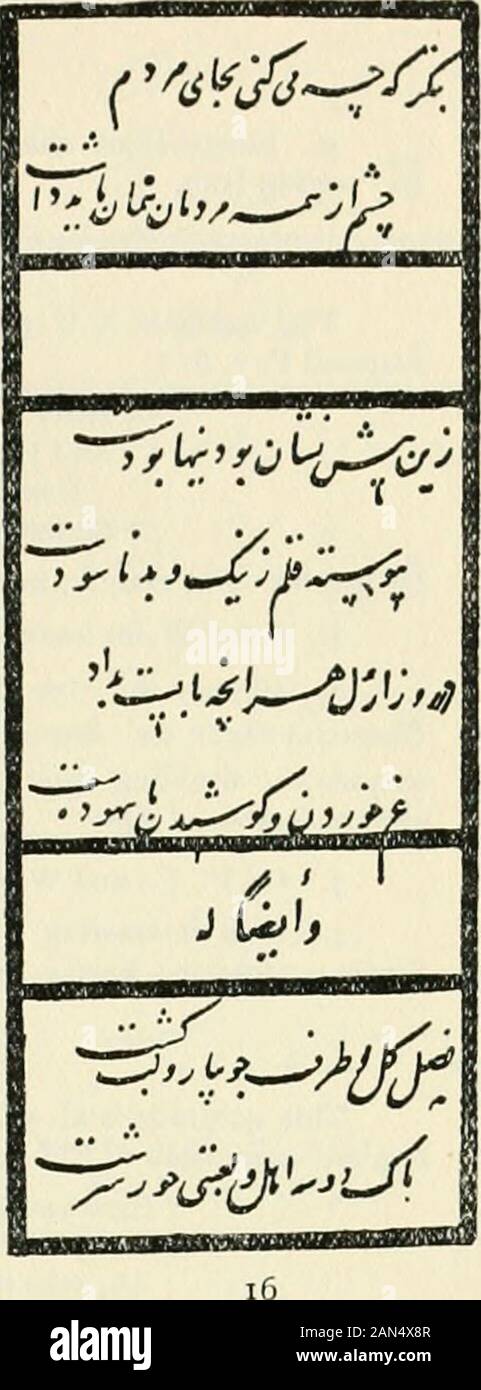 بنگر که چه می کنی بجای مردم
چشم از همه مردمان نهان باید داشت
زین پیش نشان بودنیها بودست
پیوسته قلم ز نیک و بد ناسودست
در روز ازل هر آنچه بایست بداد
غم خوردن و کوشیدن ما بیهودست
وایضا له
فصل گل و طرف جویبار و لب کشت
با یک دو سه اهل و لعبتی حور سرشت
16
alamy
Image ID: 2AN4X8R
www.alamy.com